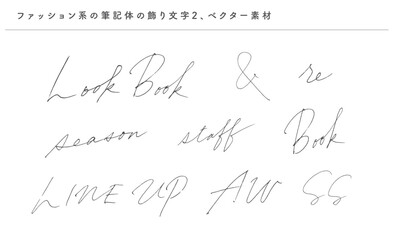 ファッション系の筆記体の飾り文字2、ベクター素材
Look Book & re
season staff Book
LINE UP AW SS